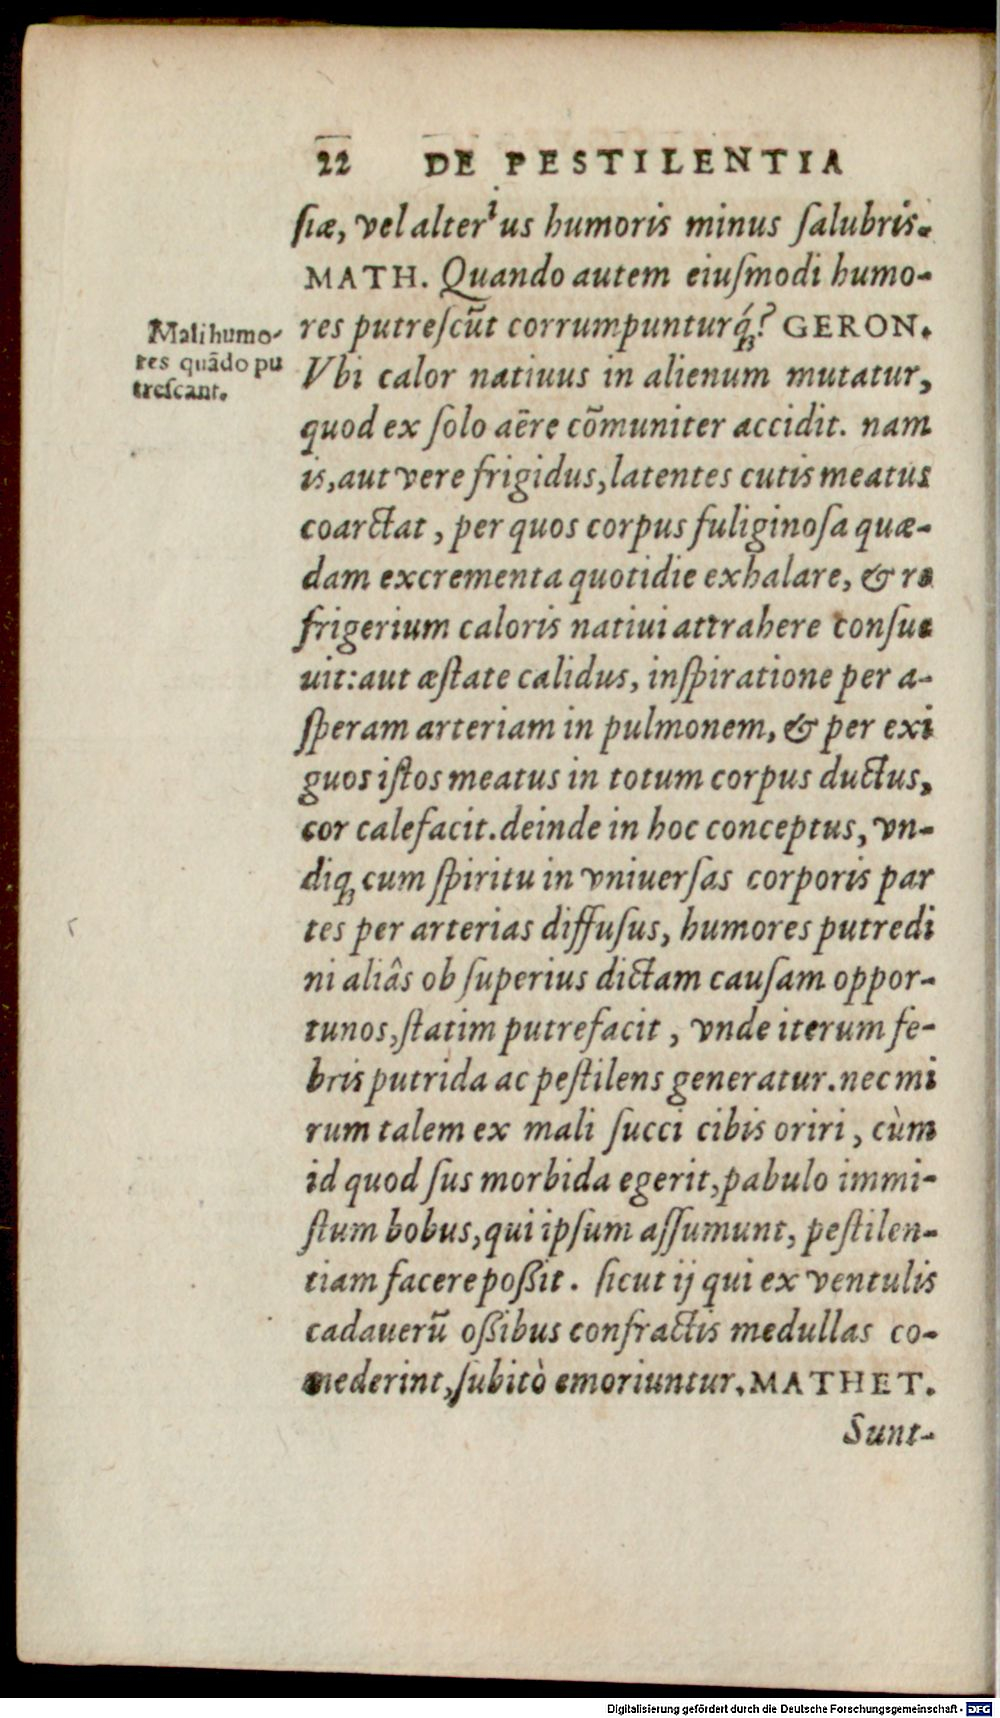 22 DE PESTILENTIA
ſiæ, vel alterius humoris minus ſalubris.
MATH. Quando autem eiuſmodi humo-
res putreſcūt corrumpunturq́;? GERON.
Mali humo-
res quãdo pu
treſcant.
Vbi calor natiuus in alienum mutatur,
quod ex ſolo aëre cõmuniter accidit. nam
is, aut vere frigidus, latentes cutis meatus
coarctat, per quos corpus fuliginoſa quæ-
dam excrementa quotidie exhalare, & re
frigerium caloris natiui attrahere conſue
uit: aut æſtate calidus, inſpiratione per a-
ſperam arteriam in pulmonem, & per exi
guos iſtos meatus in totum corpus ductus,
cor calefacit. deinde in hoc conceptus, vn-
diq; cum ſpiritu in vniuerſas corporis par
tes per arterias diffuſus, humores putredi
ni aliâs ob ſuperius dictam cauſam oppor-
tunos, ſtatim putrefacit, vnde iterum fe-
bris putrida ac peſtilens generatur. nec mi
rum talem ex mali ſucci cibis oriri, cùm
id quod ſus morbida egerit, pabulo immi-
ſtum bobus, qui ipſum aſſumunt, peſtilen-
tiam facere poßit. ſicut ij qui ex ventulis
cadauerũ oßibus confractis medullas co-
mederint, ſubitò emoriuntur. MATHET.
Sunt-
Digitalisierung gefördert durch die Deutsche Forschungsgemeinschaft - DFG